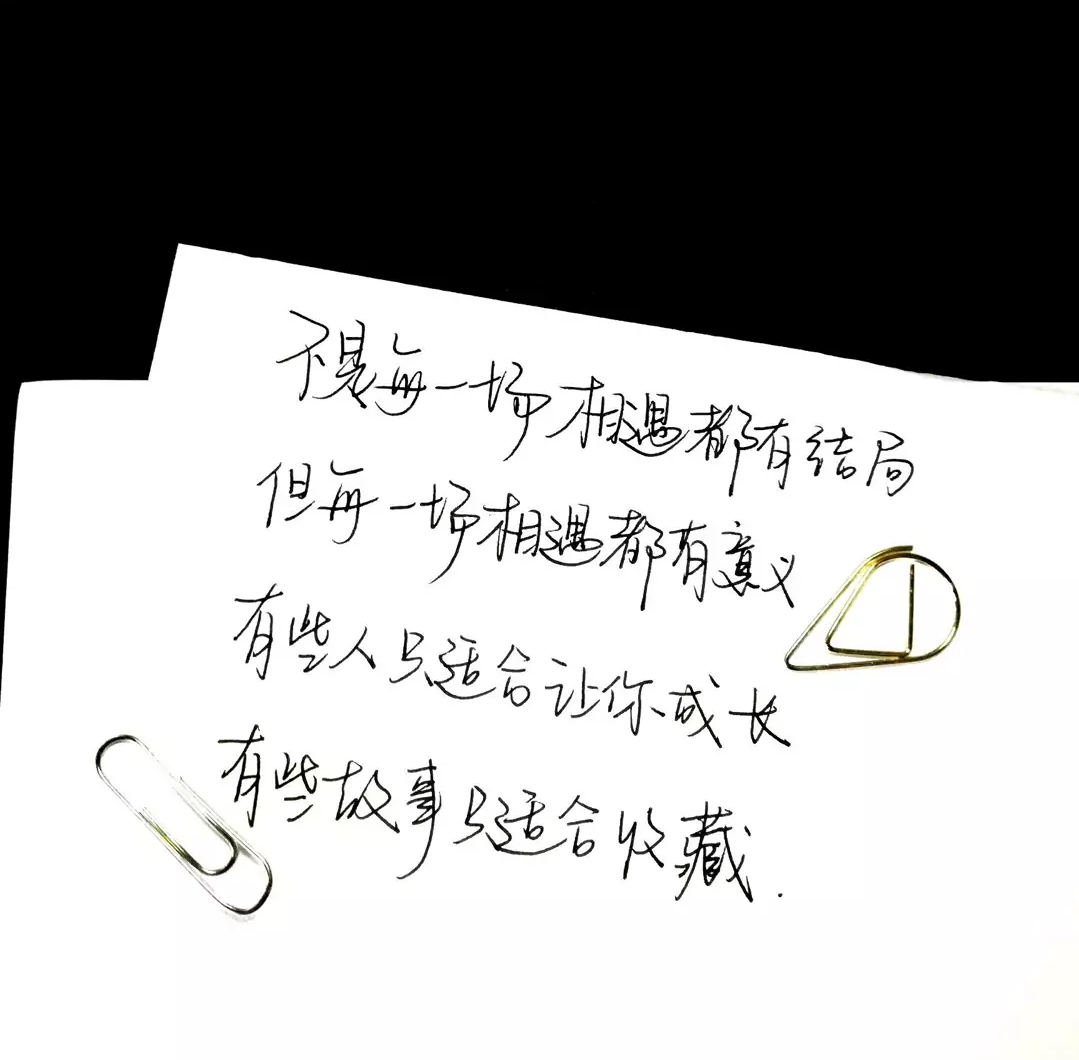 不是每一场相遇都有结局
但每一场相遇都有意义
有些人只适合让你成长
有些故事只适合收藏.